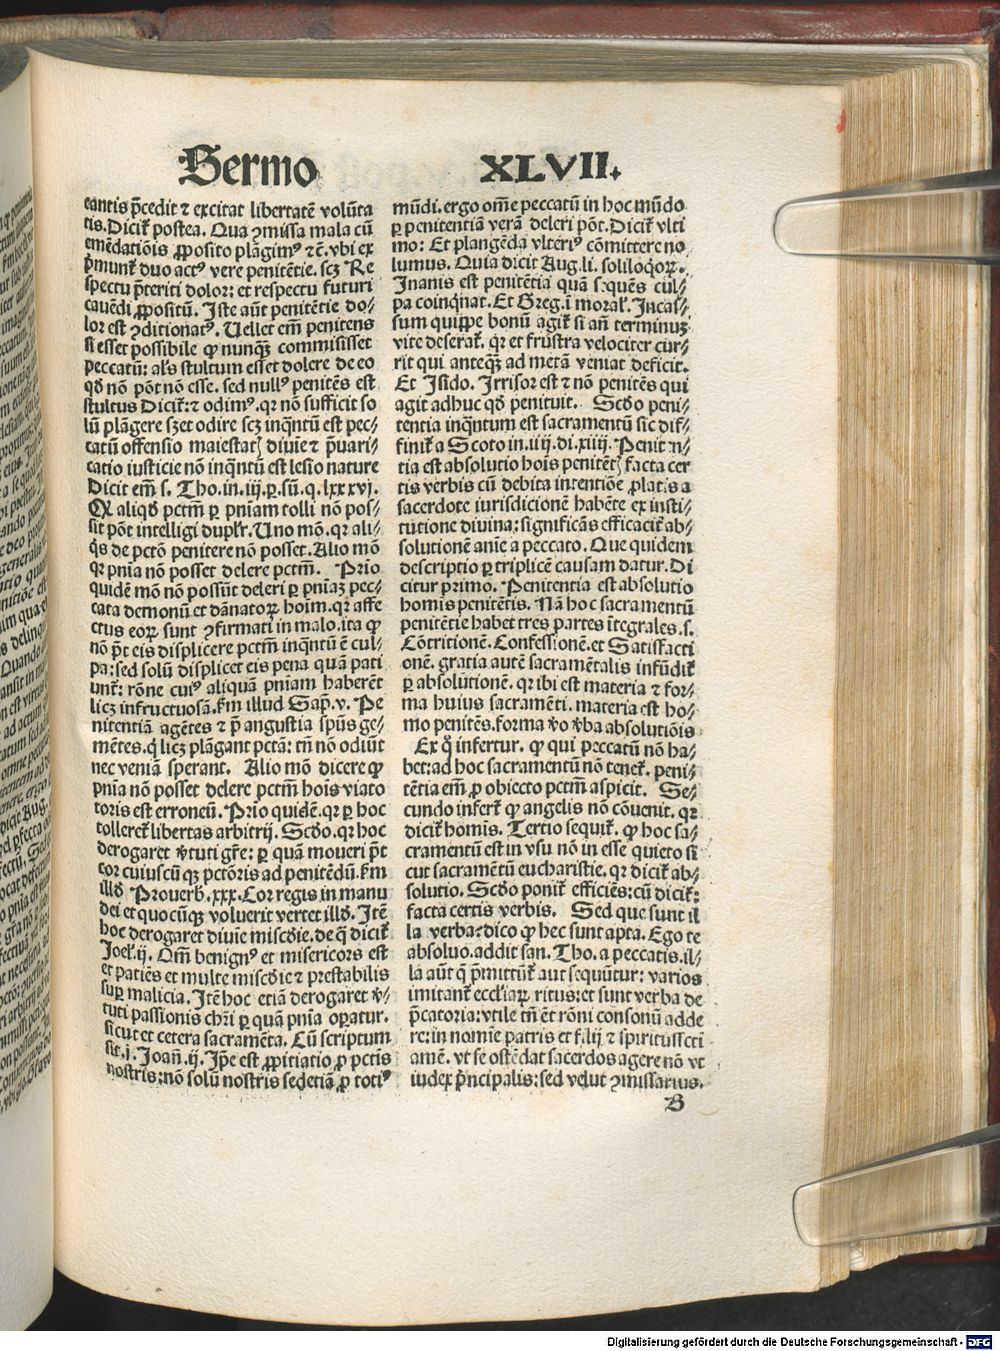 Sermo XLVII.
cantis p̄cedit ⁊ excitat libertatē volūta
tis. Dicit̃ postea. Qua ꝯmissa mala cū
emēdatiōis ꝓposito plāgimꝰ ⁊c̄. vbi ex
p̄munt̃ duo actꝰ vere penitētie. scꝫ Re
spectu p̄teriti dolor: et respectu futuri
cauēdi ꝓpositū. Iste aūt penitētie do-
lor est ꝯditionatꝰ. Uellet em̄ penitens
si esset possibile ꝙ nunqꝫ commisisset
peccatū: al's stultum esset dolere de eo
qđ nō pōt nō esse. sed nullꝰ penitēs est
stultus Dicit̃: ⁊ odimꝰ. qꝛ nō sufficit so
lū plāgere sꝫ et odire scꝫ inqꝫtū est pec-
catū offensio maiestatꝭ diuīe ⁊ p̄uari-
catio iusticie nō inqꝫtū est lesio nature
Dicit em̄ s. Tho. in. iij. p. sū. q. lxxxvj.
Q aliqđ pctm̄ ꝑ pniam tolli nō pos-
sit pōt intelligi duplr̄. Uno mō. qꝛ ali-
q̄s de pctō penitere nō posset. Alio mō
qꝛ pnīa nō posset delere pctm̄. Prīo
quidē mō nō possūt deleri ꝑ pnīaꝫ pec-
cata demonū et dānatoꝝ hoīm. qꝛ affe
ctus eoꝝ sunt ꝯfirmati in malo. ita ꝙ
nō p̄t eis displicere pctm̄ inqꝫtū ē cul-
pa: sed solū displicet eis pena quā pati
unt̃: rōne cuiꝰ aliquā pniam haberēt
licꝫ infructuosā. k̄m illud Sap̄. v. Pe
nitentiā agētes ⁊ p̄ angustia spūs ge-
mētes. q̄ licꝫ plāgant pctā: tn̄ nō odiūt
nec veniā sperant. Alio mō dicere ꝙ
pnīa nō posset delere pctm̄ hoīs viato
toris est erroneū. Prīo quidē. qꝛ ꝑ hoc
tolleret̃ libertas arbitrij. Scđo. qꝛ hoc
derogaret v̄tuti gr̄e: ꝑ quā moueri p̄t
cor cuiuscūqꝫ pctōris ad penitēdū. k̄m
illđ Prouerb̄. xxx. Cor regis in manu
dei et quocūqꝫ voluerit vertet illđ. Itē
hoc derogaret diuīe miscđie. de q̄ dicit̃
Joel̄. ij. Om̄ benignꝰ et misericors est
et patiēs et multe miscđie ⁊ prestabilis
sup̄ malicia. Itē hoc etiā derogaret v̄-
tuti passionis chr̄i ꝑ quā pnīa oꝑatur.
sicut et cetera sacramēta. Cū scriptum
sit. j. Joan̄. ij. Ip̄e est ꝓpitiatio ꝓ pctis
nostris: nō solū nostris sed etiā ꝓ totiꝰ
mūdi. ergo om̄e peccatū in hoc mūdo
ꝑ penitentiā verā deleri pōt. Dicit̃ vlti
mo: Et plangēda vlteriꝰ cōmittere no
lumus. Quia dicit Aug. li. soliloqoꝝ.
Inanis est penitētia quā seq̄uēs cul-
pa coinqͥnat. Et Greg. ī moral̄. Incas-
sum quippe bonū agit̃ si an̄ terminuꝫ
vite deserat̃. qꝛ et frustra velociter cur-
rit qui anteqꝫ ad metā veniat deficit.
Et Isido. Irrisor est ⁊ nō penitēs qui
agit adhuc qđ penituit. Scđo peni-
tentia inqꝫtum est sacramentū sic dif-
finit̃ a Scoto in. iiij. di. xiiij. Penitēn-
tia est absolutio hoīs penitētꝭ facta cer
tis verbis cū debita intentiōe ꝓlatis a
sacerdote iurisdicionē habēte ex insti-
tutione diuina: significās efficacit̃ ab-
solutionē anīe a peccato. Que quidem
descriptio ꝑ triplicē causam datur. Di
citur primo. Penitentia est absolutio
homis penitētis. Nā hoc sacramentū
penitētie habet tres partes ītegrales. s.
Cōtritionē. Confessionē. et Satisfacti
onē. gratia autē sacramētalis infūdit̃
ꝑ absolutionē. qꝛ ibi est materia ⁊ for-
ma huius sacramēti. materia est ho-
mo penitēs. forma v̄o v̄ba absolutiōis
Ex q̄ infertur. ꝙ qui peccatū nō ha-
bet: ad hoc sacramentū nō tenet̃. peni-
tētia em̄ ꝓ obiecto pctm̄ aspicit. Se-
cundo infert̃ ꝙ angelis nō cōuenit. qꝛ
dicit̃ homīs. Tertio sequit̃. ꝙ hoc sa-
cramentū est in vsu nō in esse quieto si
cut sacramētū eucharistie. qꝛ dicit̃ ab-
solutio. Scđo ponit̃ efficiēs: cū dicit̃:
facta certis verbis. Sed que sunt il
la verba? dico ꝙ hec sunt apta. Ego te
absoluo. addit san. Tho. a peccatis. il-
la aūt q̄ p̄mittūt̃ aut sequūtur: varios
imitant̃ eccl'iaꝝ ritus: et sunt verba de
p̄catoria: vtile tn̄ ēt rōni consonū adde
re: in nomīe patris et filij ⁊ spiritussctī
amē. vt se ostēdat sacerdos agere nō vt
iudex p̄ncipalis: sed velut ꝯmissarius.
B
Digitalisierung gefördert durch die Deutsche Forschungsgemeinschaft - DFG